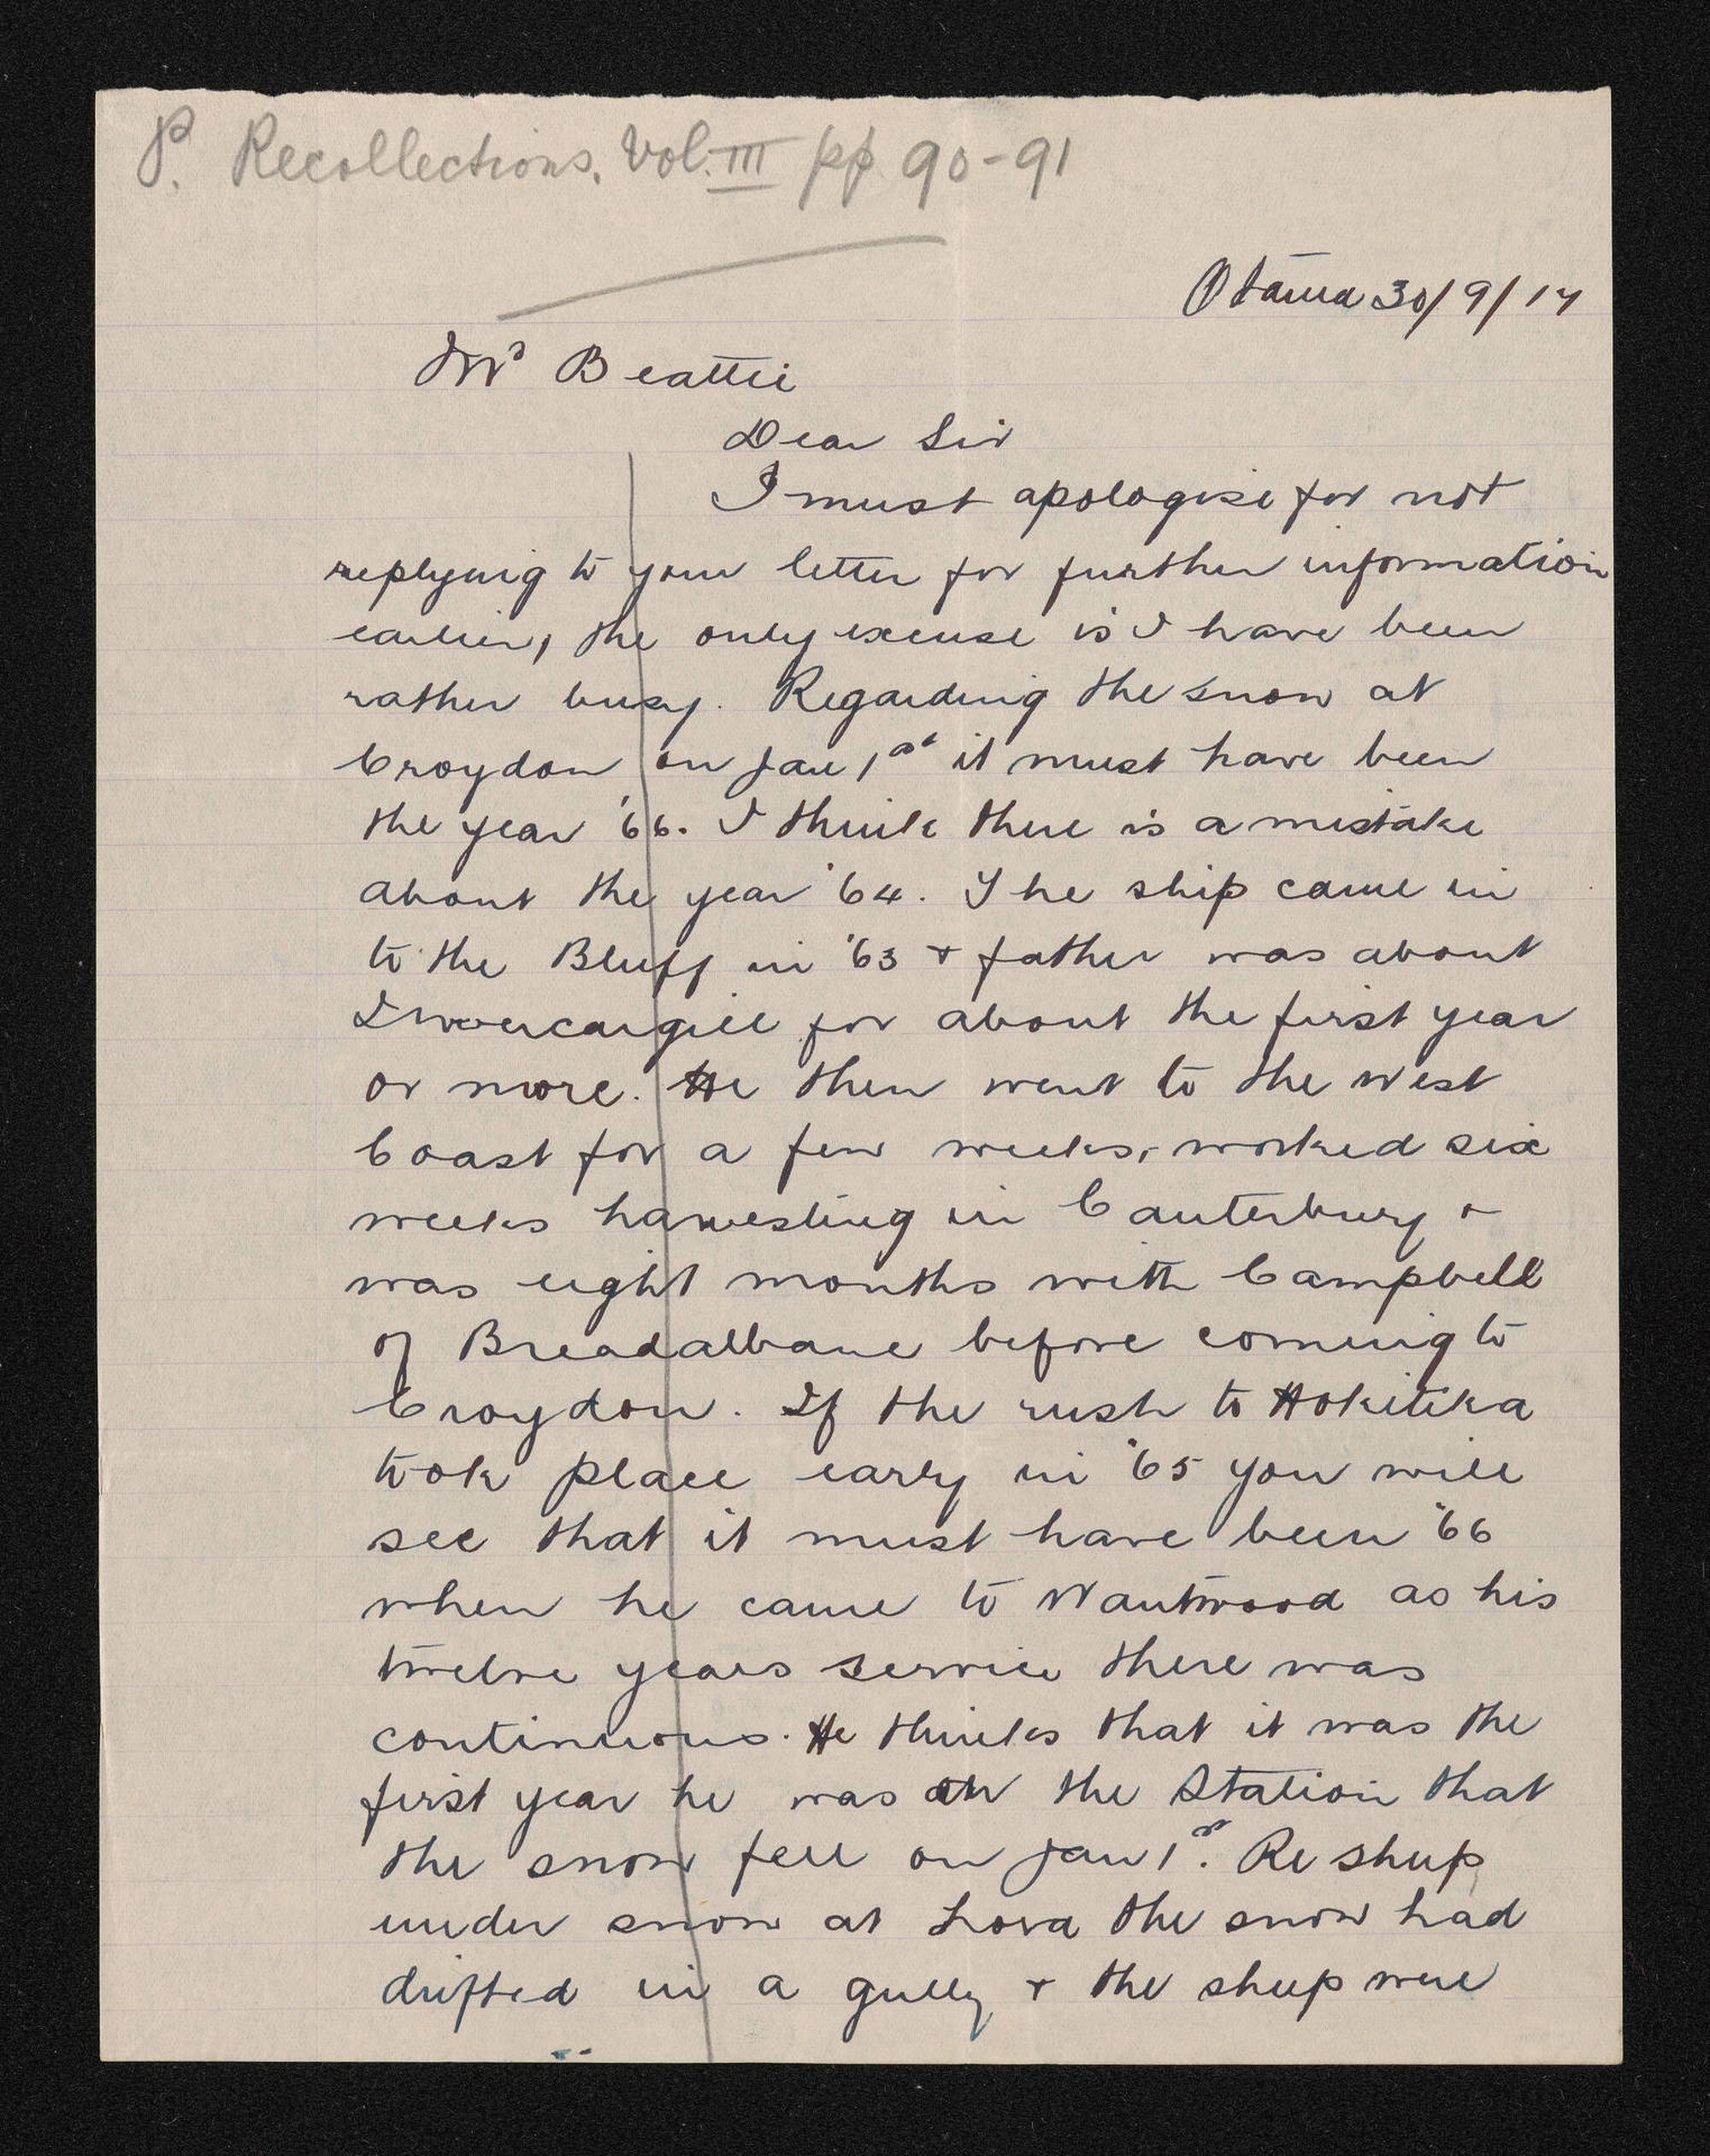 P. Recollections. Vol. III pp 90-91
Otama 30/9/14
Mr Beattie
Dear Sir
I must apologise for not
replying to your letter for further information
earlier, the only excuse is I have been
rather busy. Regarding the snow at
Croydon on Jan 1st it must have been
the year '66. I think there is a mistake
about the year '64. The ship came in
to the Bluff in '63 + father was about
Invercargill for about the first year
or more. He then went to the West
Coast for a few weeks, worked six
weeks harvesting in Canterbury +
was eight months with Campbell
of Breadalbane before coming to
Croydon. If the rush to Hokitika
took place early in '65 you will
see that it must have been '66
when he came to Wantwood as his
twelve years service there was
continuous. He thinks that it was the
first year he was on the Station that
the snow fell on Jan 1st. Re sheep
under snow at Lora the snow had
drifted in a gully + the sheep were